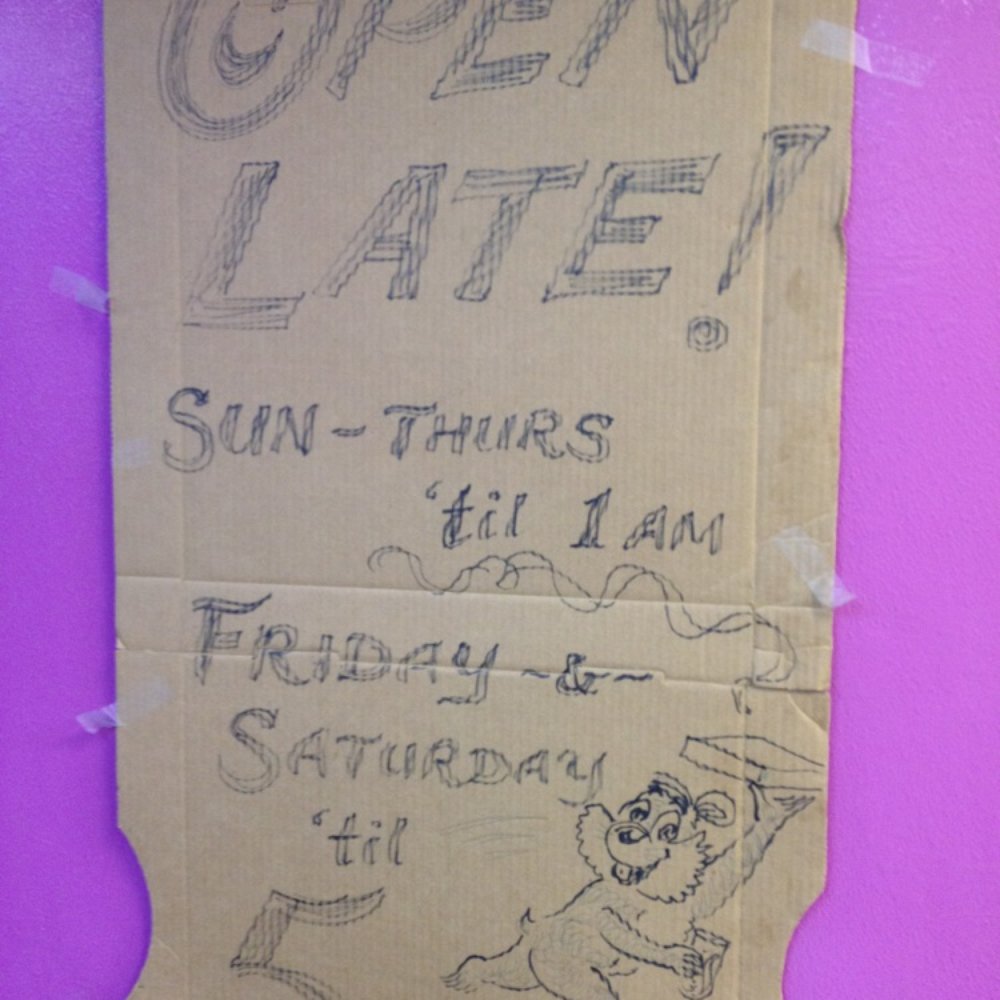 OPEN
LATE!
SUN - THURS
'til 1 AM
FRIDAY - & -
SATURDAY
'til
5